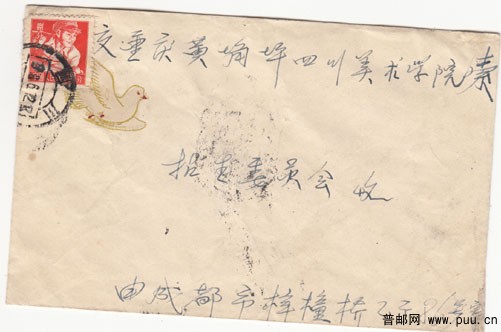 交重庆黄桷坪四川美术学院
招生委员会 收
由成都市梓橦桥
普邮网 www.puu.cn